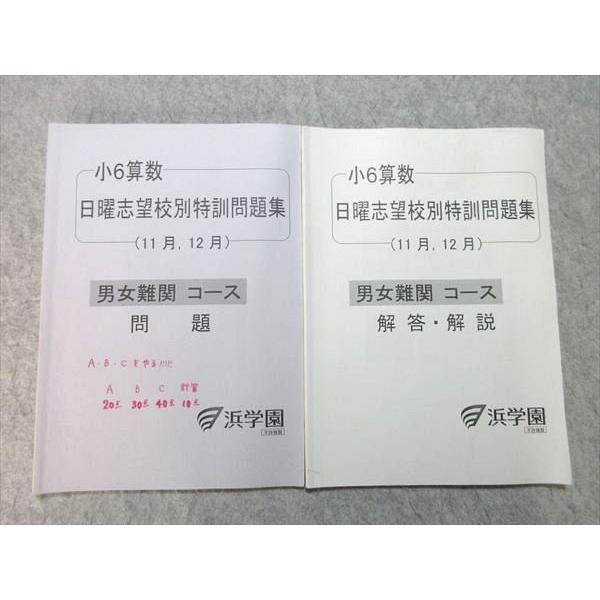 小6算数
日曜志望校別特訓問題集
(11月,12月)
男女難関 コース
問 題
A・B・Cをやる!!!!
A B C 計算
20点 30点 40点 10点
浜学園
不許複製
小6算数
日曜志望校別特訓問題集
(11月,12月)
男女難関 コース
解答・解説
浜学園
不許複製